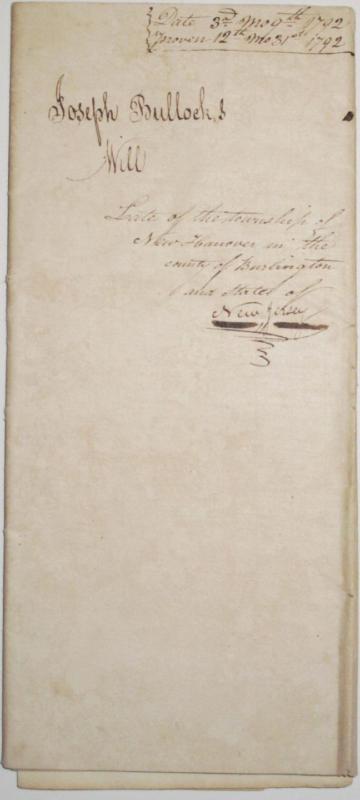 Date 3rd Mo 9th 1792
Proven 12th Mo 31st 1792
Joseph Bullock,s
Will
Late of the township of
New Hanover in the
county of Burlington
and State of
New Jersey